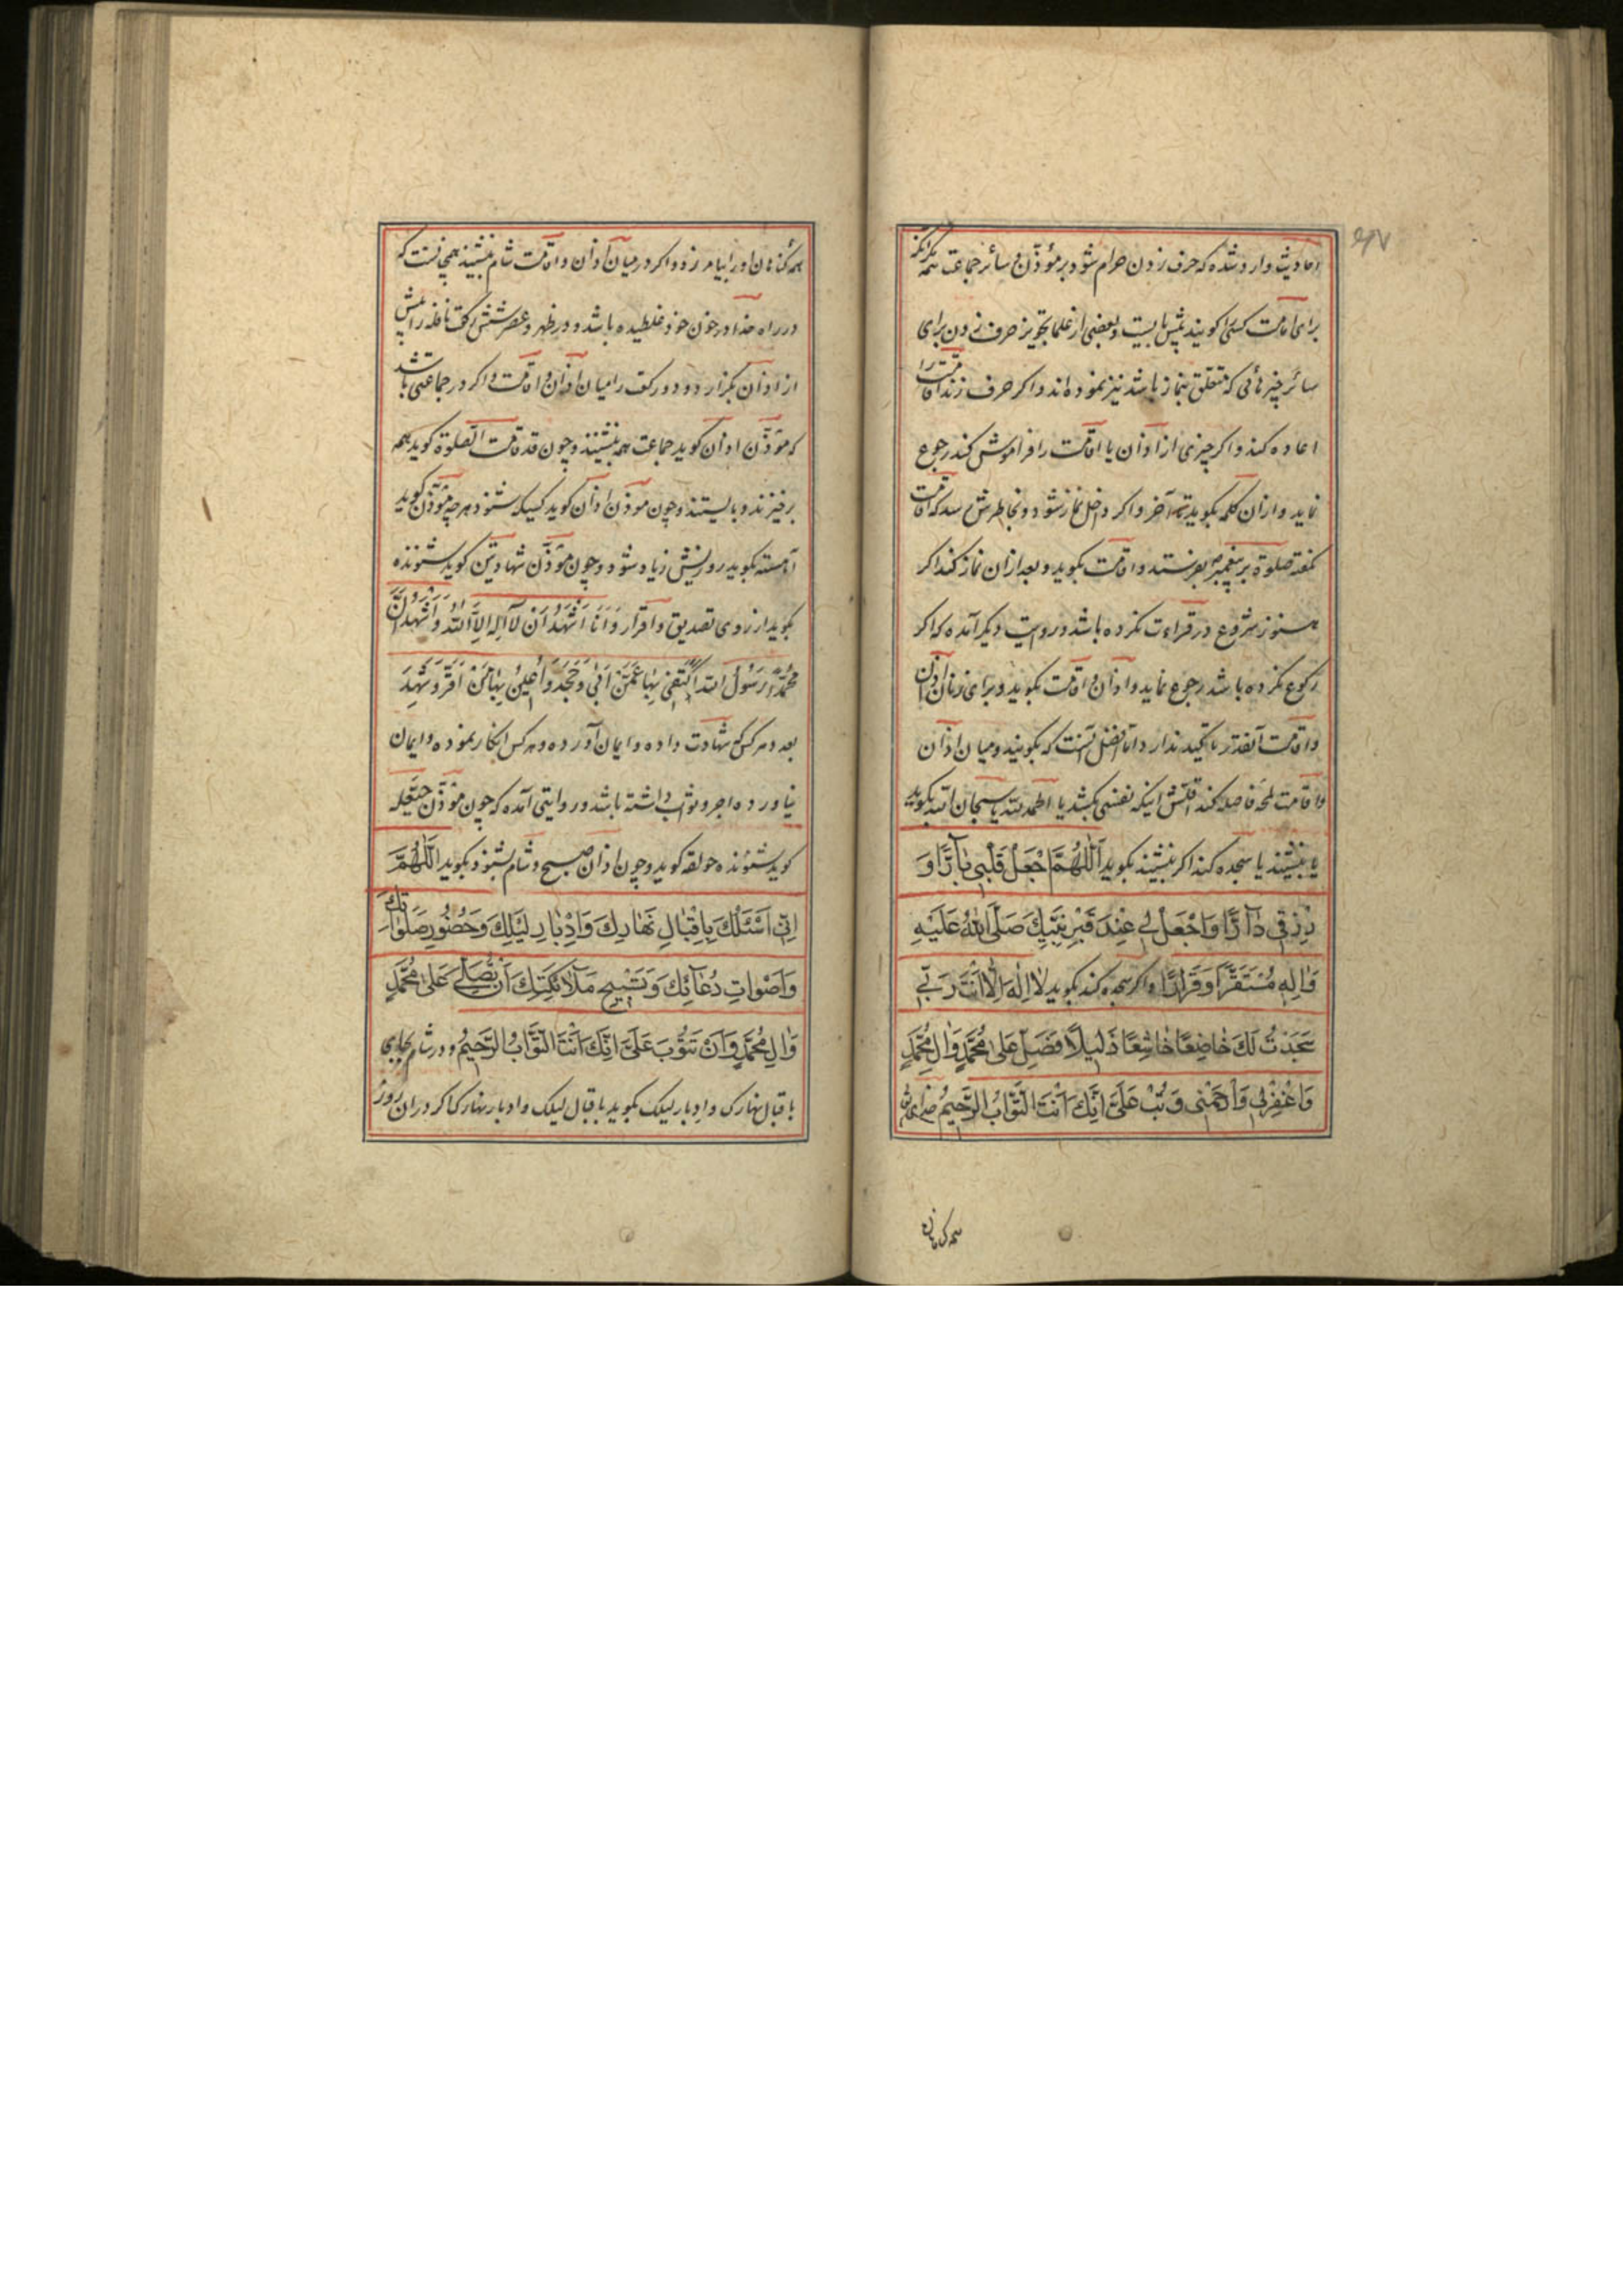 احادیث وارد شده که حرف زدن حرام شود بر مؤذن و سائر جماعت همه مکر آنکه
برای امامت کسی را کویند پیش بایست و بعضی از علما تجویز حرف زدن برای
سائر چیزهائی که متعلق بنماز باشد نیز نموده‌اند و اکر حرف زند اقامت را
اعاده کند و اکر چیزی از اذان یا اقامت را فراموش کند رجوع
نماید و از ان کلمه بکوید تا آخر و اکر داخل نماز شود و بخاطرش رسد که اقامت
نکفته صلوة بر پیغمبر بفرستد و اقامت بکوید و بعد از ان نماز کند اکر
هنوز شروع در قراءت نکرده باشد و در روایت دیکر آمده که اکر
رکوع نکرده باشد رجوع نماید و اذان و اقامت بکوید و برای زنان اذان
و اقامت آنقدر تاکید ندارد اما افضل آنست که بکویند و میان اذان
و اقامت لمحه فاصله کند اقلش اینکه نفسی بکشد یا الحمد لله یا سبحان الله بکوید
یا بنشیند یا سجده کند اکر بنشیند بکوید اَللّٰهُمَّ اجْعَلْ قَلْبِی بٰآرًّا وَ
رِزْقِی دٰآرًّا وَاجْعَلْ لِی عِنْدَ قَبْرِ نَبِیِّكَ صَلَّی اللهُ عَلَیْهِ
وَاٰلِهِ مُسْتَقَرًّا وَقَرٰارًا و اکر سجده کند بکوید لٰا اِلٰهَ اِلّٰا اَنْتَ رَبّی
سَجَدْتُ لَكَ خٰاضِعًا خٰاشِعًا ذَلِیلًا فَصَلِّ عَلیٰ مُحَمَّدٍ وَاٰلِ مُحَمَّدٍ
وَاغْفِرْلِی وَارْحَمْنِی وَتُبْ عَلَیَّ اِنَّكَ اَنْتَ التَّوّٰابُ الرَّحِیمُ خدای تعالی
همه کناهان
همه کناهان او را بیامرزد و اکر در میان اذان و اقامت شام بنشیند همچنانست که
در راه خدا در خون خود غلطیده باشد و در ظهر و عصر شش رکعت نافله را پیش
از اذان بکزارد و دو رکعت را میان اذان و اقامت و اکر در جماعتی باشد
که مؤذن اذان کوید جماعت همه بنشینند و چون قد قامت الصلوة کوید همه
برخیزند و بایستند و چون مؤذن اذان کوید کسیکه شنود هر چه مؤذن کوید
آهسته بکوید روزیش زیاد شود و چون مؤذن شهادتین کوید شنونده
بکوید از روی تصدیق و اقرار وَاَنَا اَشْهَدُ اَنْ لٰآ اِلٰهَ اِلَّا اللهُ وَاَشْهَدُ اَنَّ
مُحَمَّدًا رَسُولُ اللهِ اَکْتَفِی بِهَا عَمَّنْ اَبیٰ وَجَحَدَ وَاُعِینُ بِهَا مَنْ اَقَرَّ وَشَهِدَ
بعدد هر کس که شهادت داده و ایمان آورده و هر کس انکار نموده و ایمان
نیاورده اجر و ثواب داشته باشد و در روایتی آمده که چون مؤذن حیعله
کوید شنونده حولقه کوید و چون اذان صبح و شام بشنود بکوید اَللّٰهُمَّ
اِنّی اَسْئَلُكَ بِاِقْبٰالِ نَهٰارِكَ وَاِدْبٰارِ لَیْلِكَ وَحُضُورِ صَلَوٰاتِكَ
وَاَصْوٰاتِ دُعٰآئِكَ وَتَسْبِیحِ مَلٰآئِکَتِكَ اَنْ تُصَلِّیَ عَلیٰ مُحَمَّدٍ
وَاٰلِ مُحَمَّدٍ وَاَنْ تَتُوبَ عَلَیَّ اِنَّكَ اَنْتَ التَّوّٰابُ الرَّحِیمُ و در شام بجای
باقبال نهارک و ادبار لیلک بکوید باقبال لیلک و ادبار نهارک اکر در ان روز